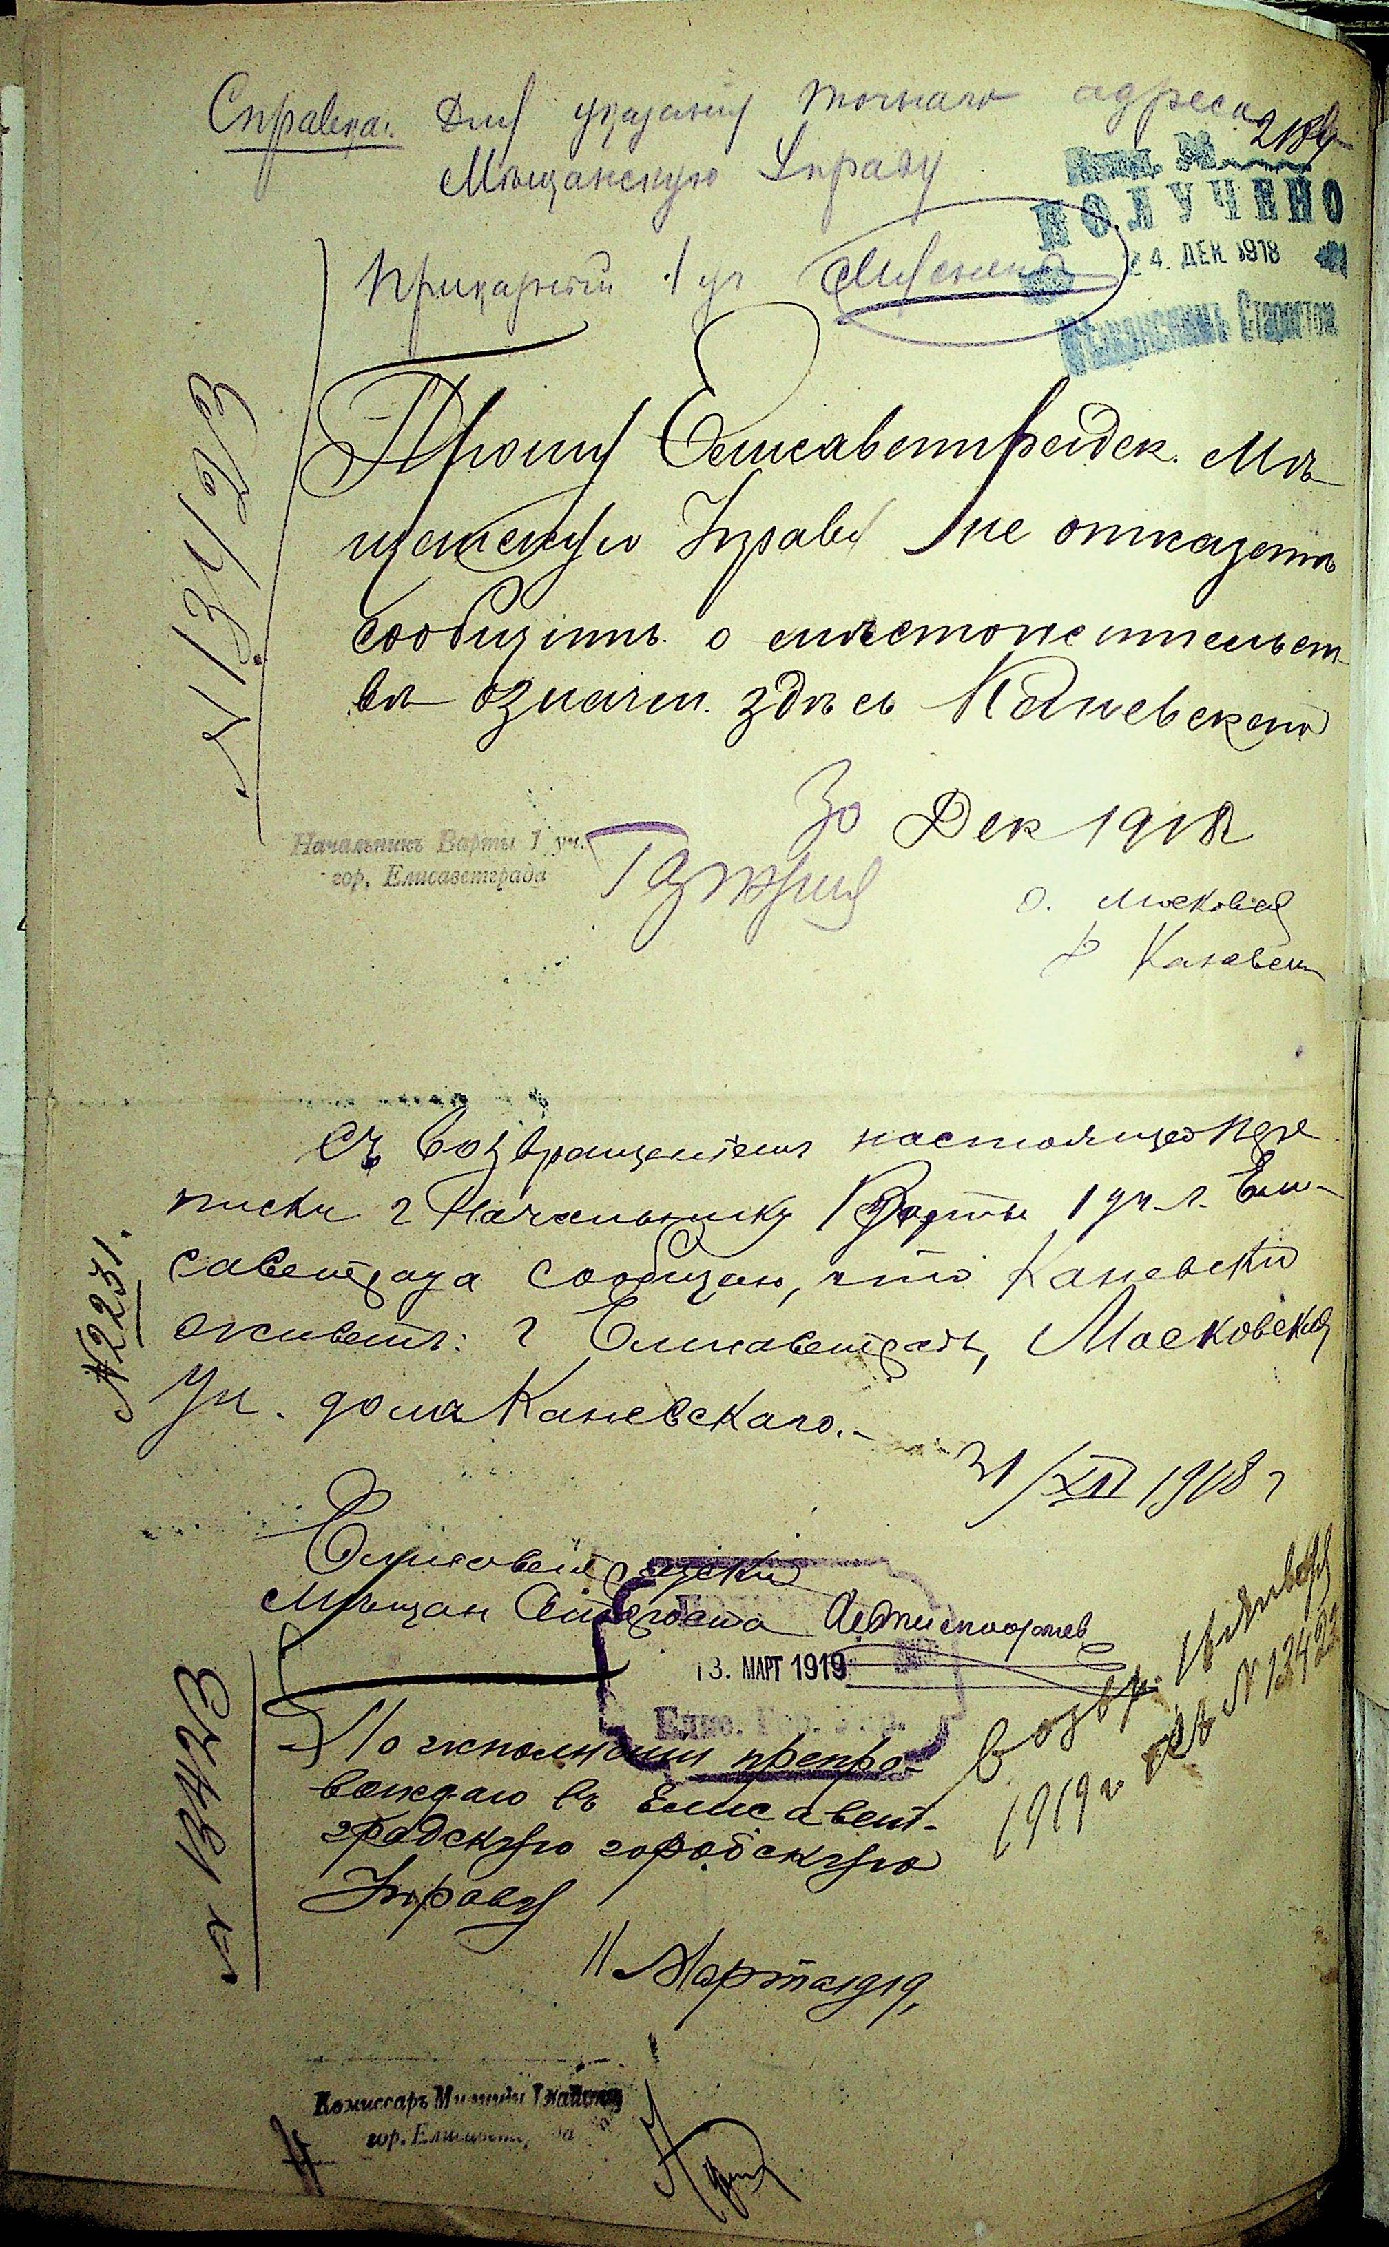 Справка: Для указанія точнаго адреса
Мѣщанскую Управу
2184
Вход. №
ПОЛУЧЕНО
24. ДЕК 1918
Мѣщанскимъ Старостой
1 уч
№ 13423
Прошу Елисаветградск. Мѣ-
щанскую Управу не отказать
сообщить о мѣстожительст-
вѣ означен. здѣсь Каневскаго
30 Дек 1918
Начальникъ Варты 1 уч.
гор. Елисаветграда
Каневск
Съ возвращеніемъ настоящей пере
писки г Начальнику Варты 1 уч. г. Ели-
саветграда сообщаю, что Каневскій
живетъ: г Елисаветградъ, Московская
ул. дома Каневскаго.-
№ 2231.
31/XII 1918 г
Елисаветградскій
Мѣщан Староста
13. МАРТ 1919
Елис. Гор. Упр.
По исполненіи препро-
вождаю въ Елисавет-
градскую городскую
Управу
№ 13423
возвр. 16 января
1919 г № 13423
11 Марта 1919,
Комиссаръ Милиціи 1 района
гор. Елисаветграда